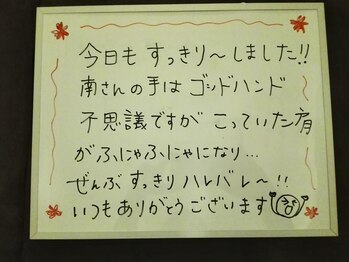 今日も すっきり～しました!!
南さんの手は ゴッドハンド
不思議ですが こっていた肩
がふにゃふにゃになり...
ぜんぶ すっきりハレバレ～!!
いつもありがとうございます